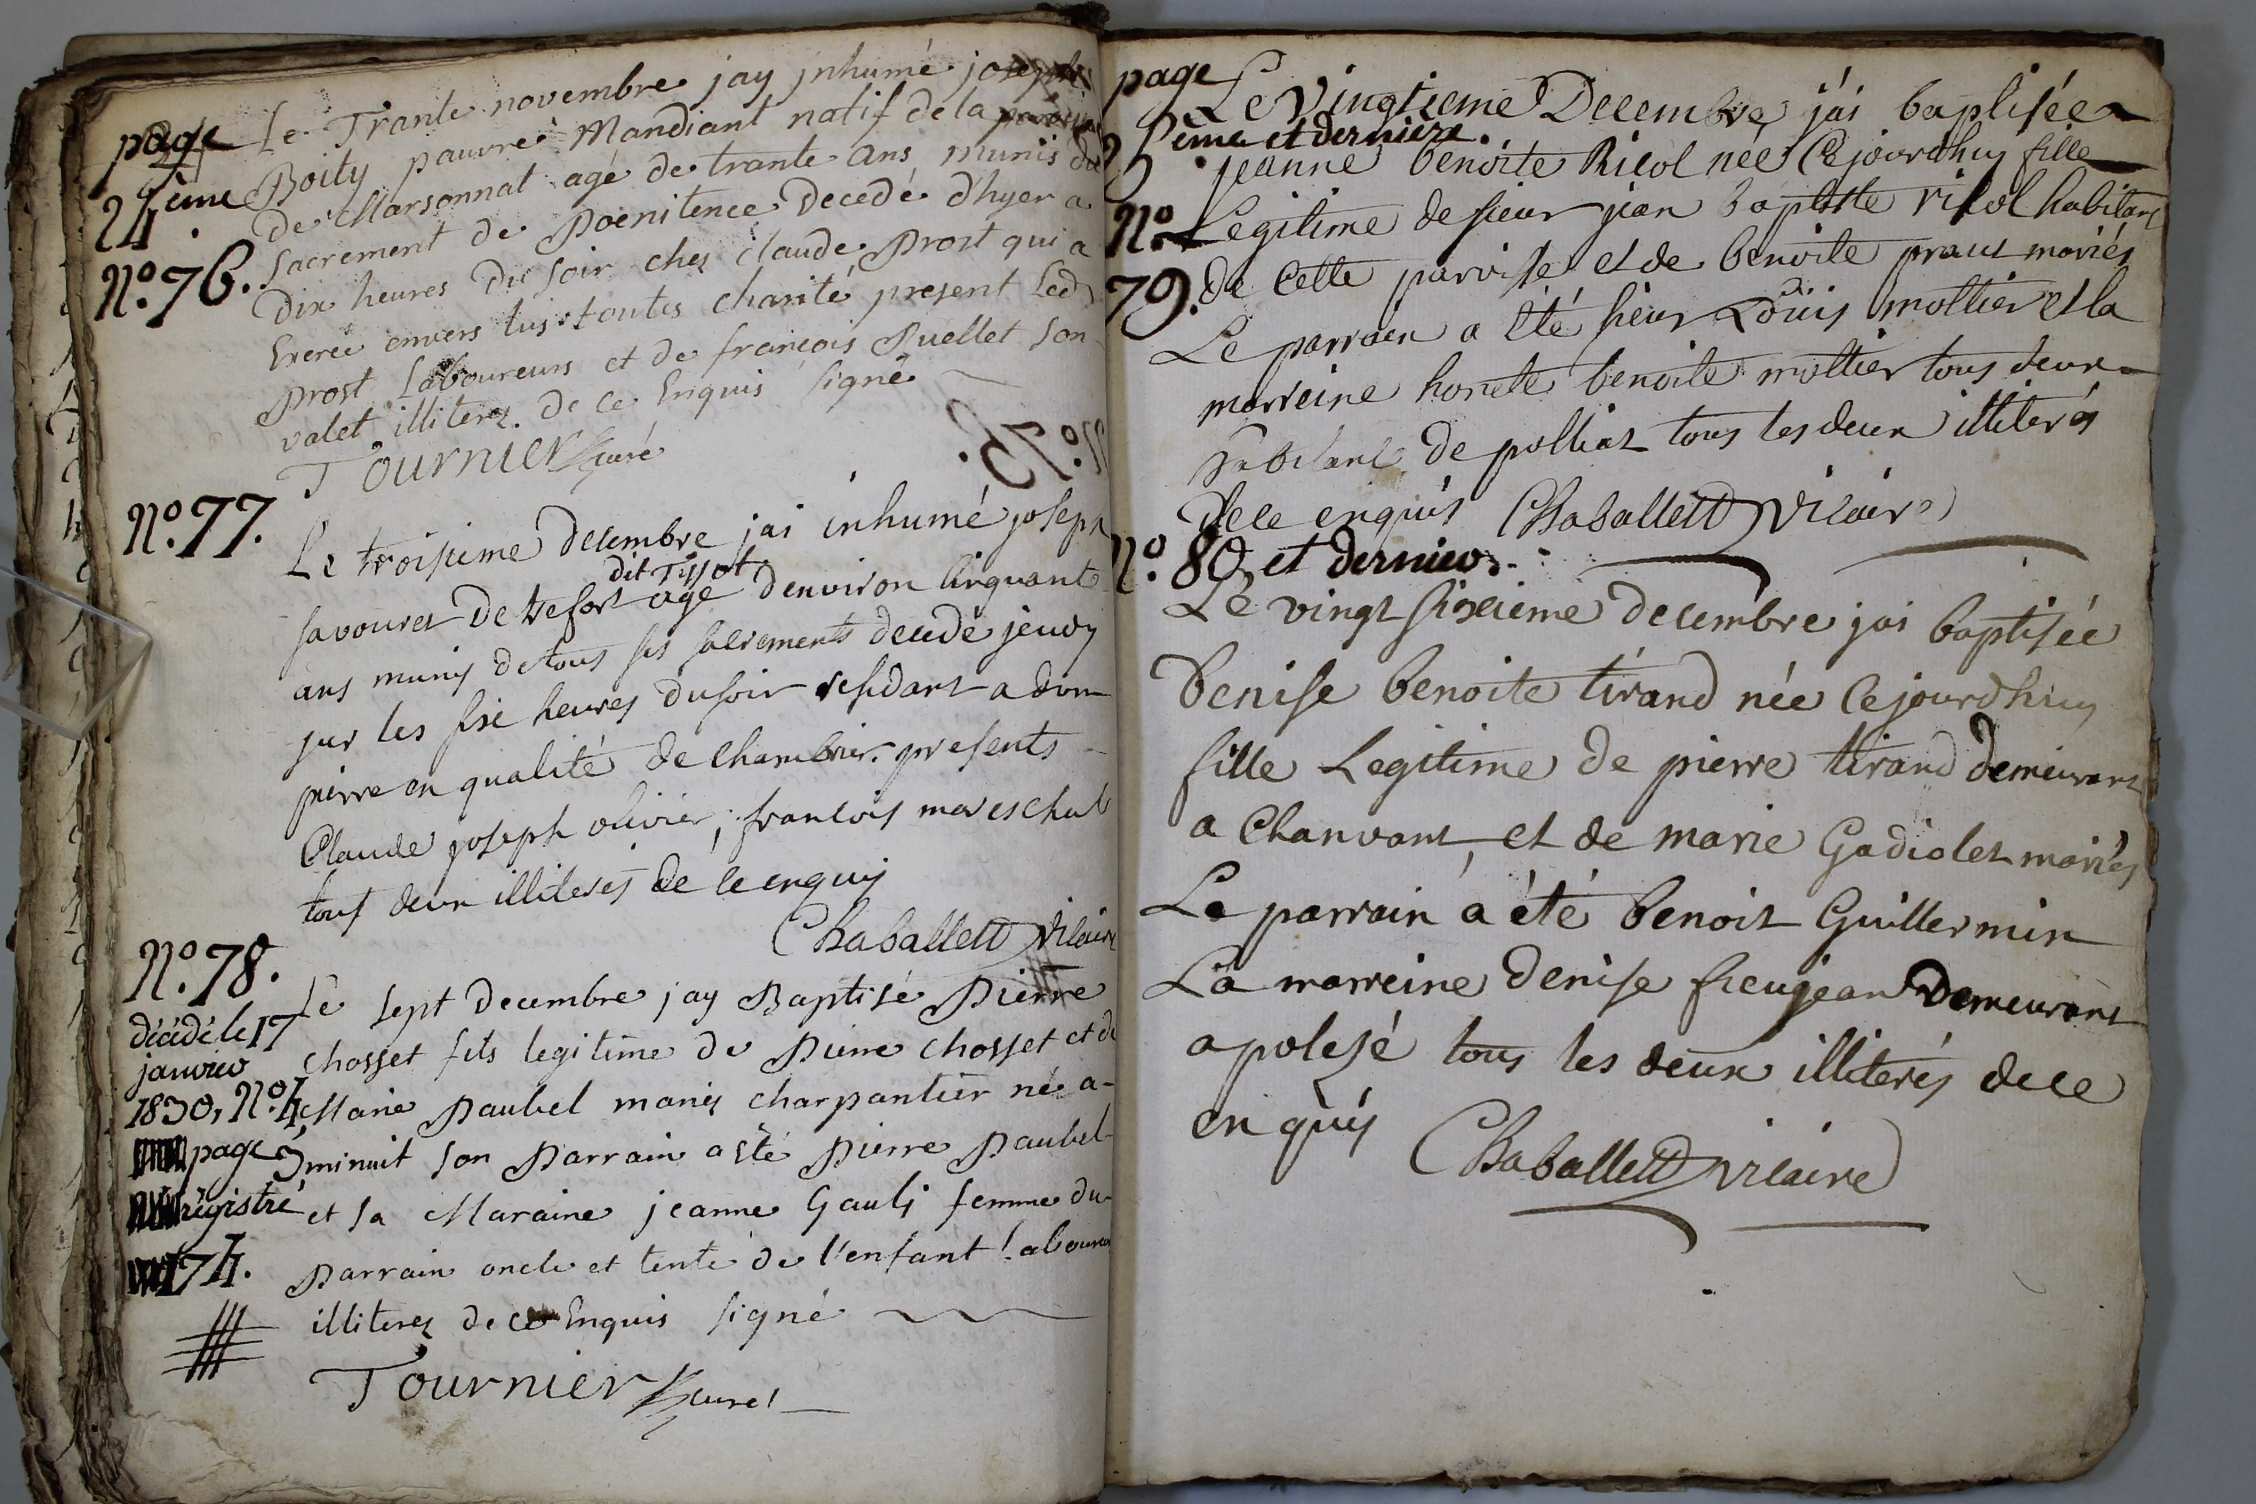 page
24ème
N.º 76.
Le Trante novembre jay jnhumé joseph
Boity pauvre Mandiant natif de la paroisse
de Marsonnat agé de trante ans munis du
sacrement de Poenitence Decedé d'hyer a
Dix heures Du soir chez claude Prost qui a
Exercé envers luis toutes charité present Led
Prost Laboureurs et de francois Puellet son
valet illiterez de ce Enquis signé
Tournier curé
N.º 77.
Le troisieme decembre jai inhumé joseph
savouret De trefort dit Tissot agé d'environ cinquante
ans munis de tous ses sacrements decedé jeudy
sur les six heures du soir residant a dom
pierre en qualité de chambrier. presents
Claude joseph olivier, francois mareschal
tous deux illiterés de ce enquis
Chaballett Vicaire
N.º 78.
décédé le 17
janvier
1830, N.º 4
page 3
régistré
174.
Le sept decembre jay Baptisé Pierre
chosset fils legitime de Pierre chosset et de
Marie Paubel mariez charpantier né a
minuit son Parrain a été Pierre Paubel
et sa Maraine jeanne Gauli femme du
Parrain oncle et tente de l'enfant Laboureur
illiterez de ce Enquis signé
Tournier curé
page
25ème et dernière.
N.º
79.
Le Vingtieme Decembre jái baptisée
jeanne benoite Ricol née Cejourdhuy fille
Legitime de sieur jean baptiste ricol habitant
de cette paroisse et de benoite praut mariés
Le parrein a été sieur Loüis mottier et la
marreine honete benoite mottier tous deux
habitant de polliat tous les deux illiterés
de ce enquis Chaballett Vicaire
N.º 80, et dernier.
Le vingt sixieme decembre jai baptisée
denise benoite tirand née Cejourdhuy
fille Legitime de pierre tirand demeurant
a Chanvant, et de marie Gadiolet mariés
Le parrain a été benoit Guillermin
La marreine denise fieujean Demeurant
a polezé tous les deux illiterés de ce
enquis
Chaballett Vicaire